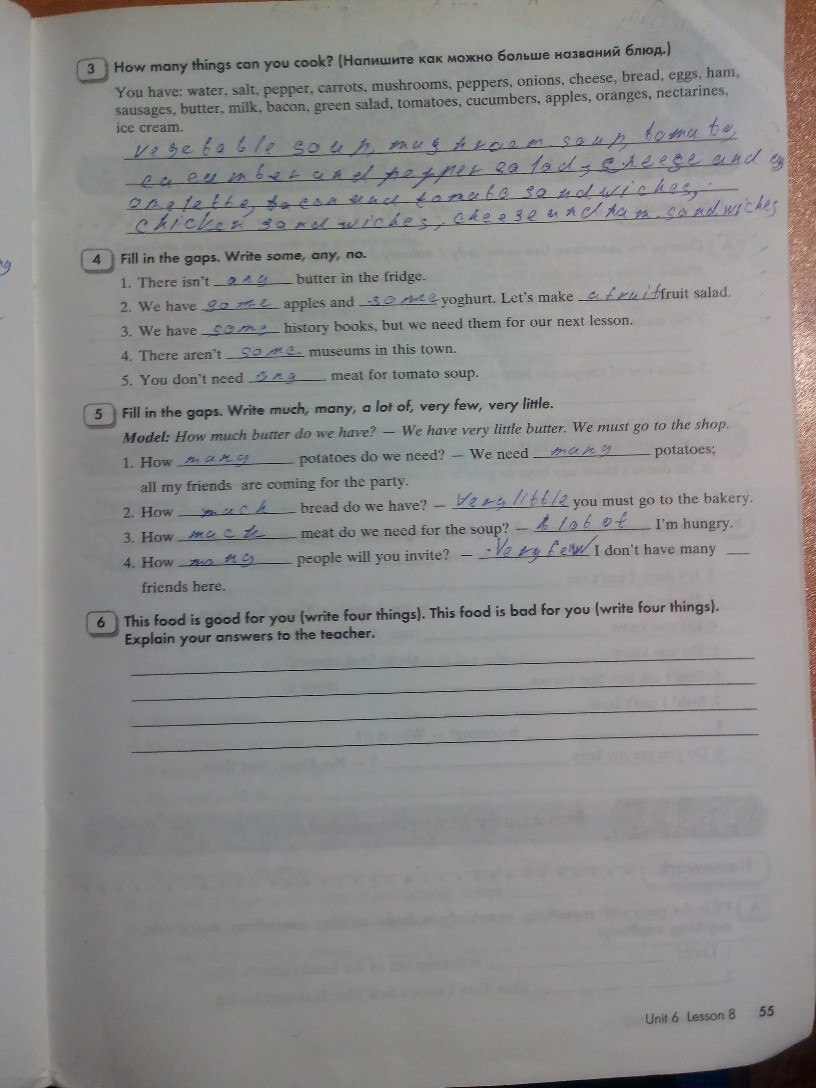 3 How many things can you cook? (Напишите как можно больше названий блюд.)
You have: water, salt, pepper, carrots, mushrooms, peppers, onions, cheese, bread, eggs, ham,
sausages, butter, milk, bacon, green salad, tomatoes, cucumbers, apples, oranges, nectarines,
ice cream.
vegetable soup, mushroom soup, tomato,
cucumber and pepper salad, cheese and eg
omlette, bacon and tomato sandwiches,
chicken sandwiches, cheese and ham sandwiches
4 Fill in the gaps. Write some, any, no.
1. There isn't any butter in the fridge.
2. We have some apples and some yoghurt. Let's make a fruit fruit salad.
3. We have some history books, but we need them for our next lesson.
4. There aren't some museums in this town.
5. You don't need any meat for tomato soup.
5 Fill in the gaps. Write much, many, a lot of, very few, very little.
Model: How much butter do we have? — We have very little butter. We must go to the shop.
1. How many potatoes do we need? — We need many potatoes;
all my friends are coming for the party.
2. How much bread do we have? — Very little you must go to the bakery.
3. How much meat do we need for the soup? — A lot of I'm hungry.
4. How many people will you invite? — Very few I don't have many
friends here.
6 This food is good for you (write four things). This food is bad for you (write four things).
Explain your answers to the teacher.
Unit 6 Lesson 8 55